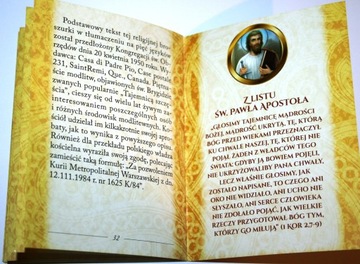 Podstawowy tekst tej religijnej bro-
szurki w tłumaczeniu na pięć języków
został przedłożony Kongregacji św. Ob-
rzędów dnia 20 kwietnia 1950 roku. Wy-
dawca: Casa di Padre Pio, Case postale
231, SaintRemi, Que., Canada. Piętna-
ście modlitw, objawionych św. Brygidzie,
zwanych popularnie „Tajemnicą szczę-
ścia", cieszy się od wielu lat żywym za-
interesowaniem poszczególnych osób
i różnych środowisk modlitewnych. Ko-
ściół udzielał im kilkakrotnie swojej apro-
baty, jak to wynika z powyższego opisu.
Również dla przekładu polskiego władza
kościelna wyraziła swoją zgodę, polecając
zamieścić taką formułę: „Za pozwoleniem
Kurii Metropolitalnej Warszawskiej z dn.
12.111.1984 r. nr 1625 K/84".
32
Z LISTU
ŚW. PAWŁA APOSTOŁA
„GŁOSIMY TAJEMNICĘ MĄDROŚCI
BOŻEJ, MĄDROŚĆ UKRYTĄ, TĘ, KTÓRĄ
BÓG PRZED WIEKAMI PRZEZNACZYŁ
KU CHWALE NASZEJ, TĘ, KTÓREJ NIE
POJĄŁ ŻADEN Z WŁADCÓW TEGO
ŚWIATA; GDYBY JĄ BOWIEM POJĘLI,
NIE UKRZYŻOWALIBY PANA CHWAŁY;
LECZ WŁAŚNIE GŁOSIMY, JAK
ZOSTAŁO NAPISANE, TO CZEGO ANI
OKO NIE WIDZIAŁO, ANI UCHO NIE
SŁYSZAŁO, ANI SERCE CZŁOWIEKA
NIE ZDOŁAŁO POJĄĆ, JAK WIELKIE
RZECZY PRZYGOTOWAŁ BÓG TYM,
KTÓRZY GO MIŁUJĄ" (1 KOR 2,7-9)